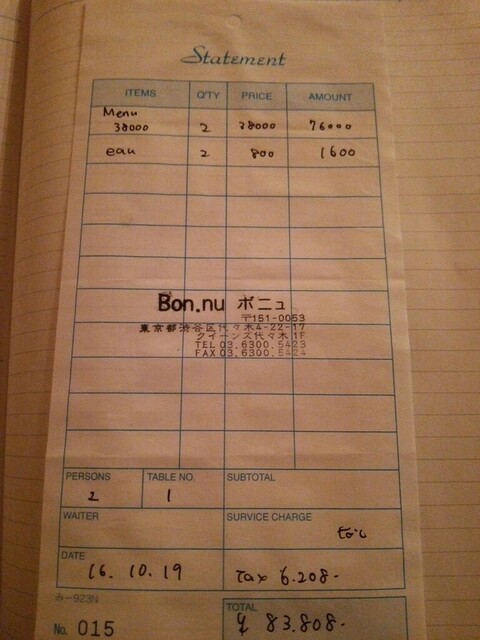 Statement
ITEMS Q'TY PRICE AMOUNT
Menu
38000 2 38000 76000
eau 2 800 1600
Bon.nu ボニュ
〒151-0053
東京都渋谷区代々木4-22-17
クイーンズ代々木1F
TEL 03.6300.5423
FAX 03.6300.5424
PERSONS TABLE NO. SUBTOTAL
2 1
WAITER SURVICE CHARGE
なし
DATE
16. 10. 19 Tax 6.208-
み-923N
No. 015
TOTAL
¥ 83.808-